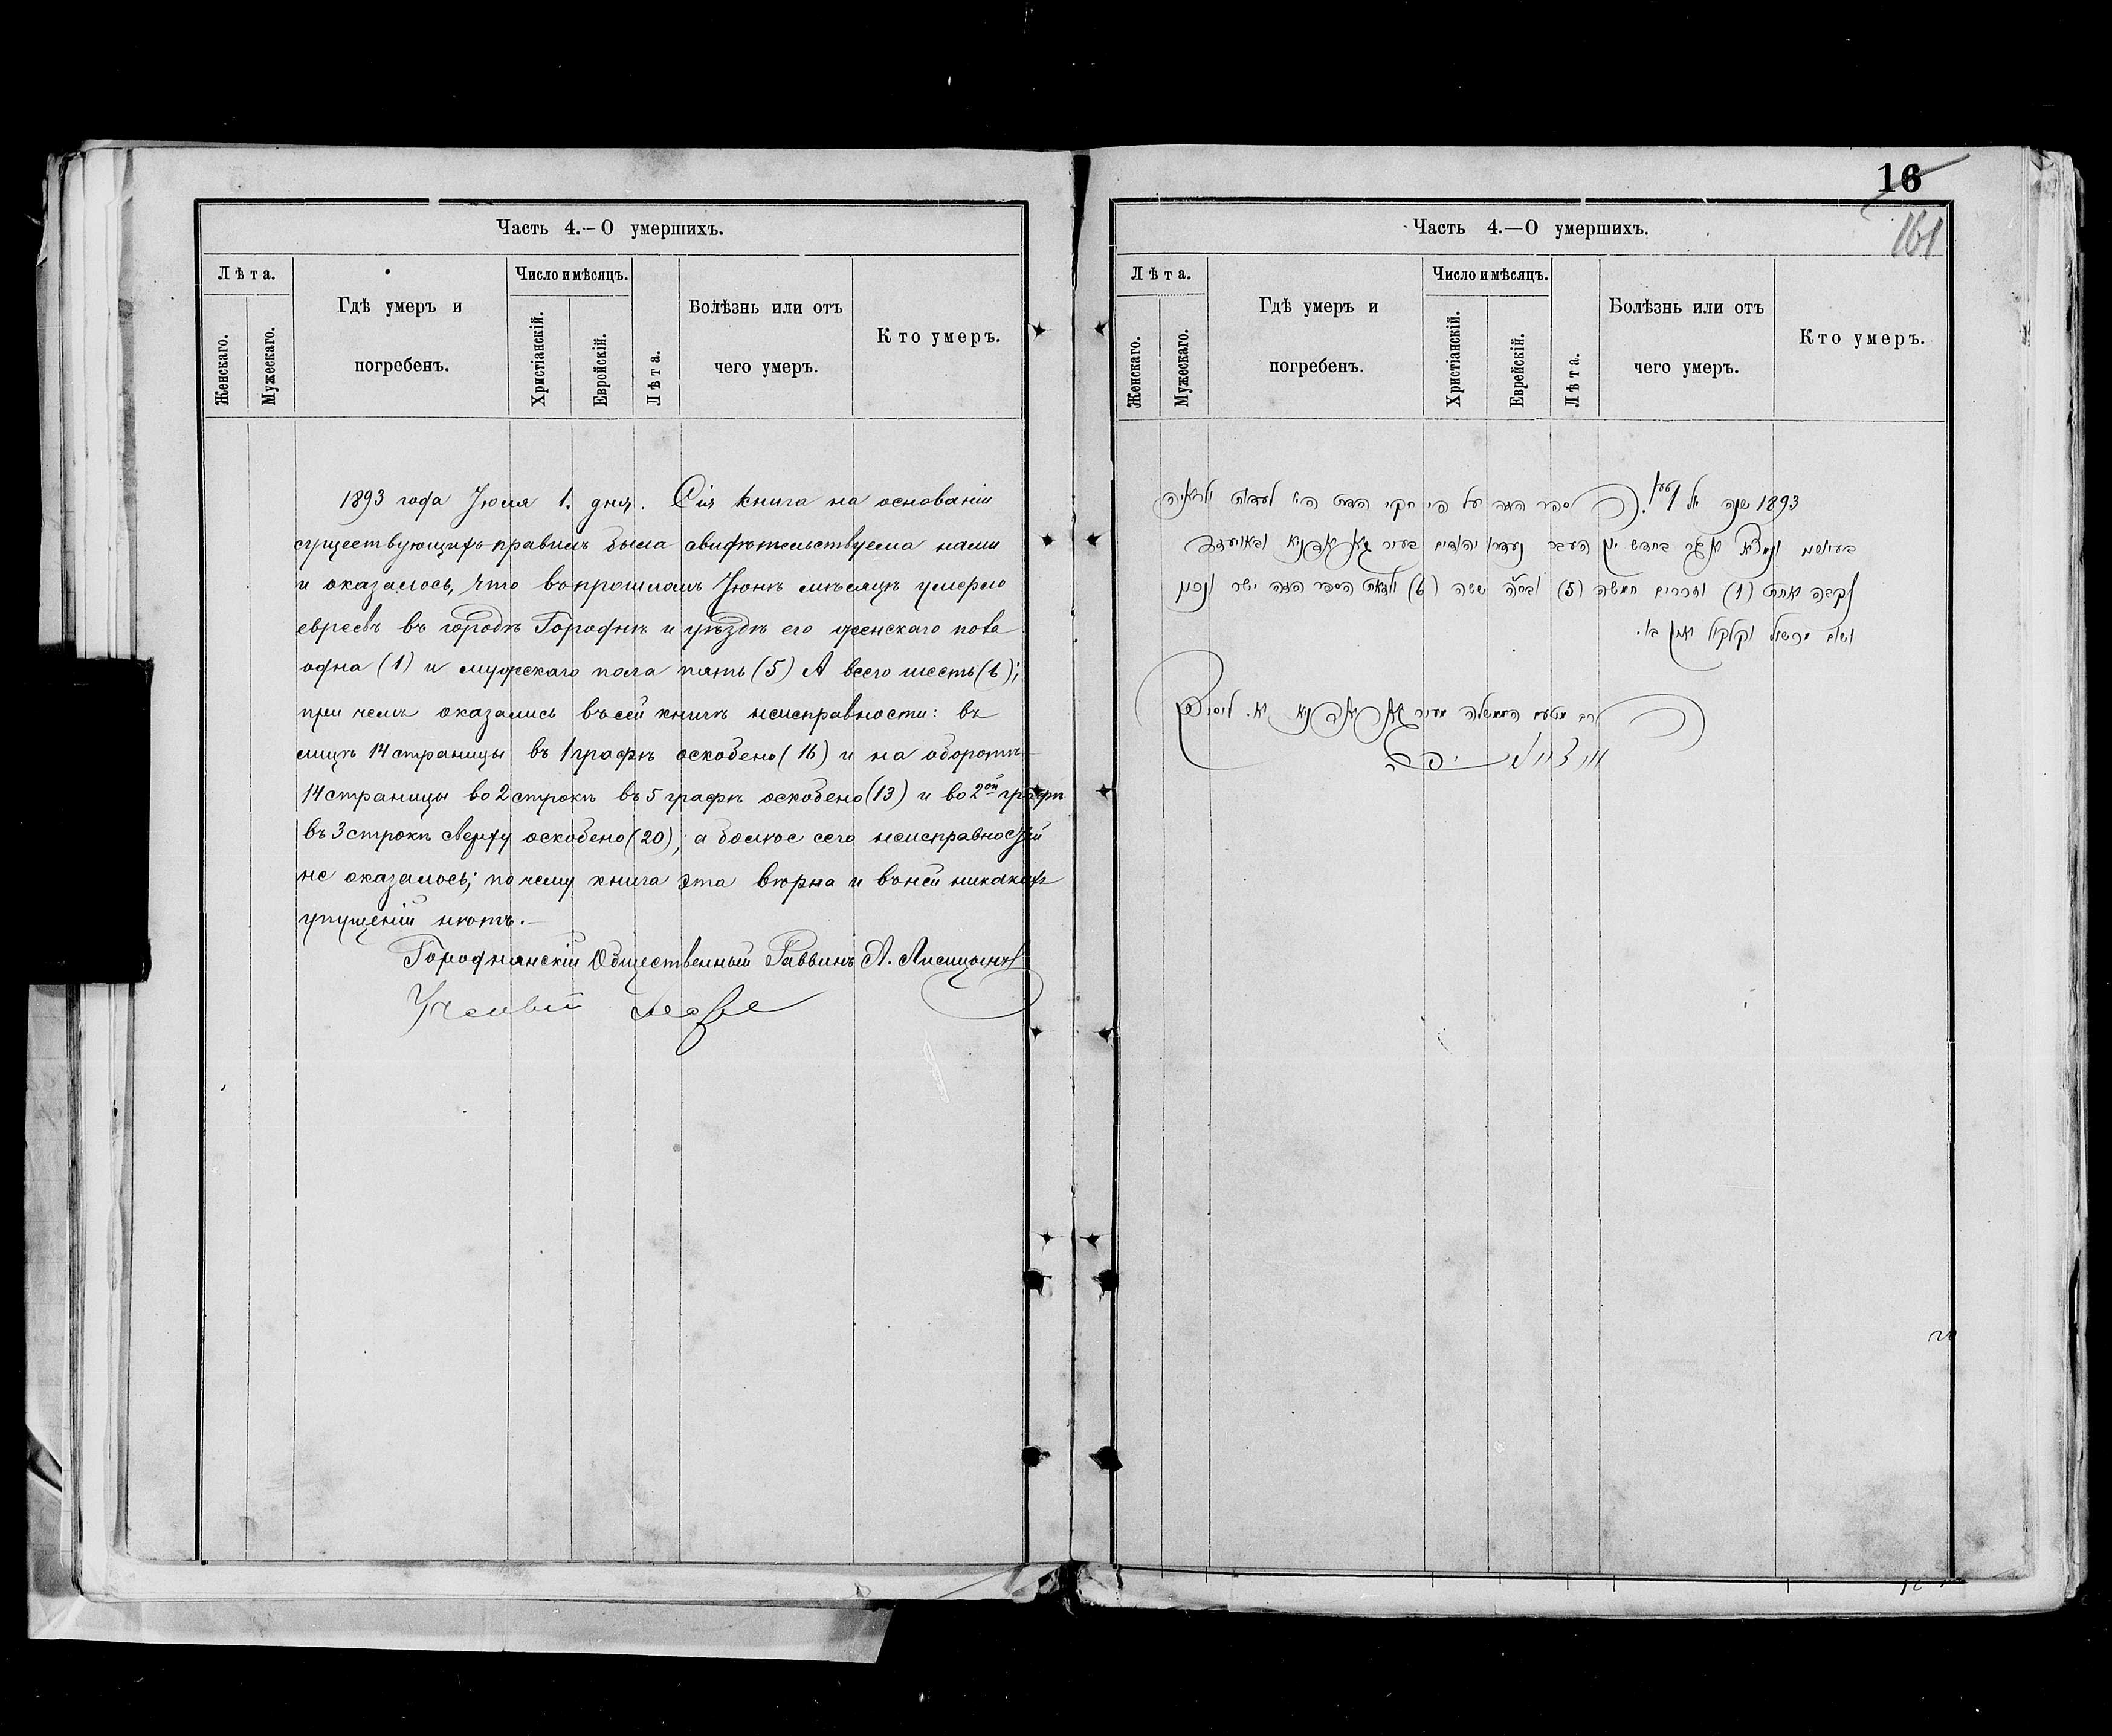 Часть 4.—О умершихъ.
Лѣта.
Женскаго.
Мужескаго.
Гдѣ умеръ и
погребенъ.
Число и мѣсяцъ.
Христіанскій.
Еврейскій.
Лѣта.
Болѣзнь или отъ
чего умеръ.
Кто умеръ.
1893 года Іюля 1. дня. Сія книга на основаніи
существующихъ правилъ была свидѣтельствуема нами
и оказалось, что въ прошломъ Іюнѣ мѣсяцѣ умерло
евреевъ въ городѣ Городнѣ и уѣздѣ его женскаго пола
одна (1) и мужескаго пола пять (5) А всего шесть (6);
при чемъ оказались въ сей книгѣ неисправности: въ
лицѣ 14 страницы въ 1 графѣ оскоблено (16) и на оборотѣ
14 страницы во 2 строкѣ въ 5 графѣ оскоблено (13) и во 2ой графѣ
въ 3 строкѣ сверху оскоблено (20); а болѣе сего неисправностей
не оказалось; почему книга эта вѣрна и въ ней никакихъ
упущеній нѣтъ.—
Городнянскій Общественный Раввинъ А. Лисицынъ
16
161
Часть 4.—О умершихъ.
Лѣта.
Женскаго.
Мужескаго.
Гдѣ умеръ и
погребенъ.
Число и мѣсяцъ.
Христіанскій.
Еврейскій.
Лѣта.
Болѣзнь или отъ
чего умеръ.
Кто умеръ.
1893 שנה יול הספר הזה על פי חקי הדת
בחדש יון העבר נעדרו יהודים בעיר
נקבה אחת (1) וזכרים חמשה (5) ובס״ה ששה (6) הספר הזה ישר ונכון
ושום מכשול וקלקול אין בו.
רב מטעם הממשלה מעיר